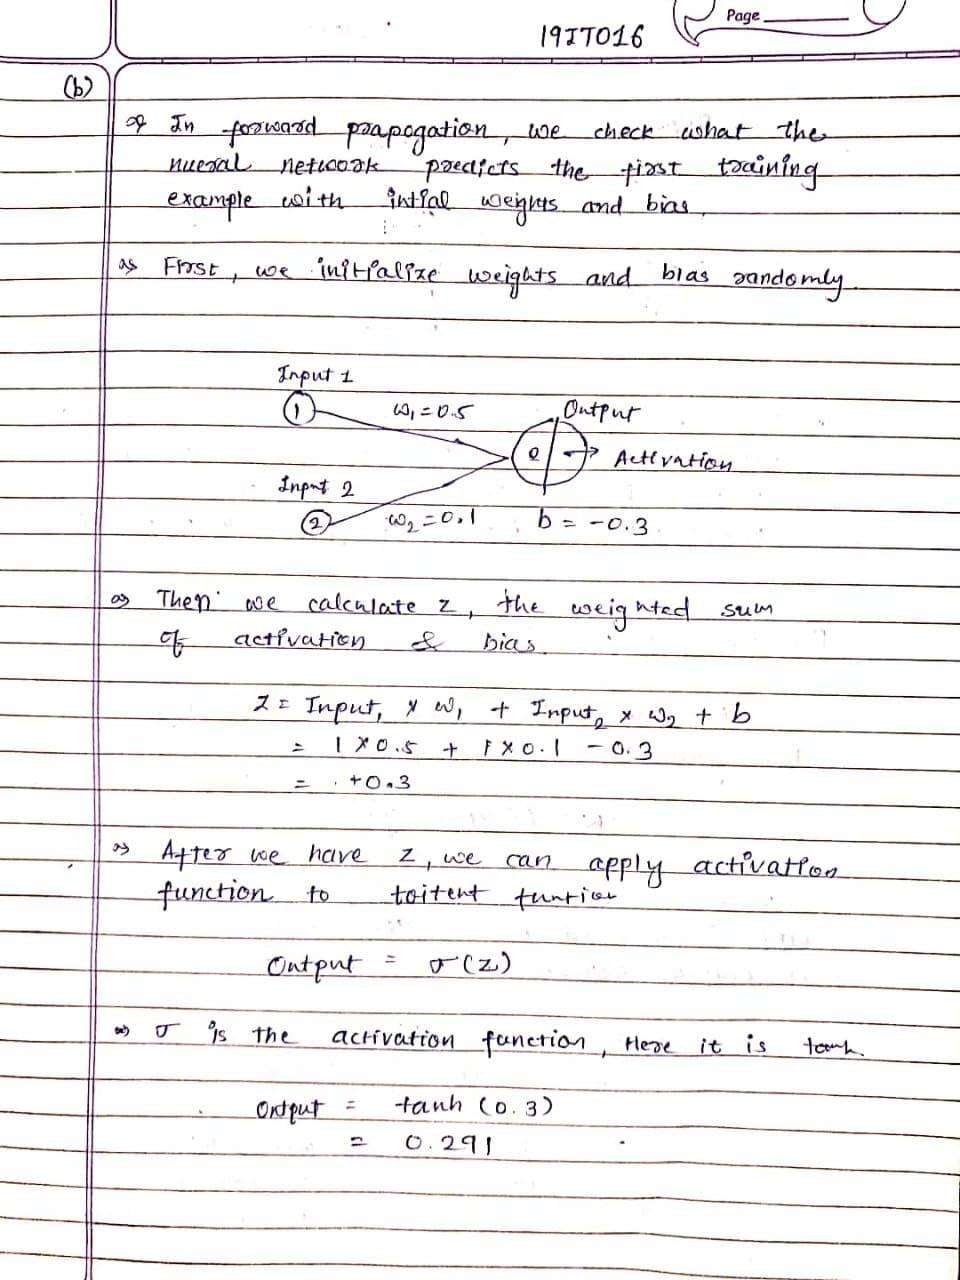 Page
19IT016
(b)
⇒ In forward prapogation, we check what the
nueral network predicts the first training
example with intial weights and bias.
⇒ First, we initialize weights and bias randomly.
Input 1
1 w₁ = 0.5 Output
Activation
Input 2
2 w₂ = 0.1 b = -0.3
⇒ Then we calculate z, the weighted sum
of activation & bias.
Z = Input₁ × w₁ + Input₂ × w₂ + b
= 1 × 0.5 + 1 × 0.1 - 0.3
= +0.3
⇒ After we have z, we can apply activation
function to
Output = σ(z)
⇒ σ is the activation function, Here it is tanh.
Output = tanh (0.3)
= 0.291